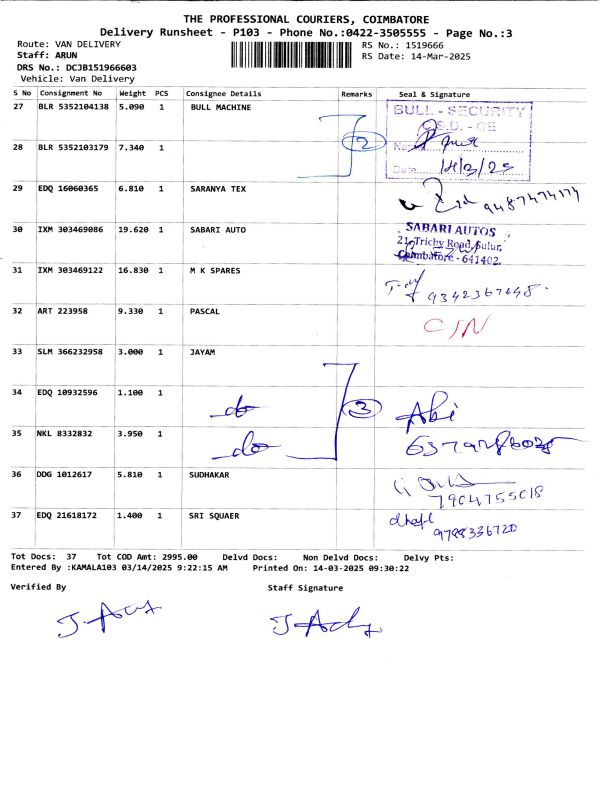 THE PROFESSIONAL COURIERS, COIMBATORE
Delivery Runsheet - P103 - Phone No.:0422-3505555 - Page No.:3
Route: VAN DELIVERY
RS No.: 1519666
Staff: ARUN
RS Date: 14-Mar-2025
DRS No.: DCJB151966603
Vehicle: Van Delivery
S No Consignment No Weight PCS Consignee Details Remarks Seal & Signature
27 BLR 5352104138 5.090 1 BULL MACHINE
BULL - SECURITY
2
Date 14/3/25
28 BLR 5352103179 7.340 1
29 EDQ 16060365 6.810 1 SARANYA TEX
9487474174
30 IXM 303469086 19.620 1 SABARI AUTO
SABARI AUTOS
21, Trichy Road, Sulur,
Coimbatore - 641402.
31 IXM 303469122 16.830 1 M K SPARES
9342367648.
32 ART 223958 9.330 1 PASCAL
C/N
33 SLM 366232958 3.000 1 JAYAM
34 EDQ 10932596 1.100 1 do 3 Abi
35 NKL 8332832 3.950 1 do
36 DDG 1012617 5.810 1 SUDHAKAR
7904755018
37 EDQ 21618172 1.400 1 SRI SQUAER
9788336720
Tot Docs: 37 Tot COD Amt: 2995.00 Delvd Docs: Non Delvd Docs: Delvy Pts:
Entered By :KAMALA103 03/14/2025 9:22:15 AM Printed On: 14-03-2025 09:30:22
Verified By Staff Signature